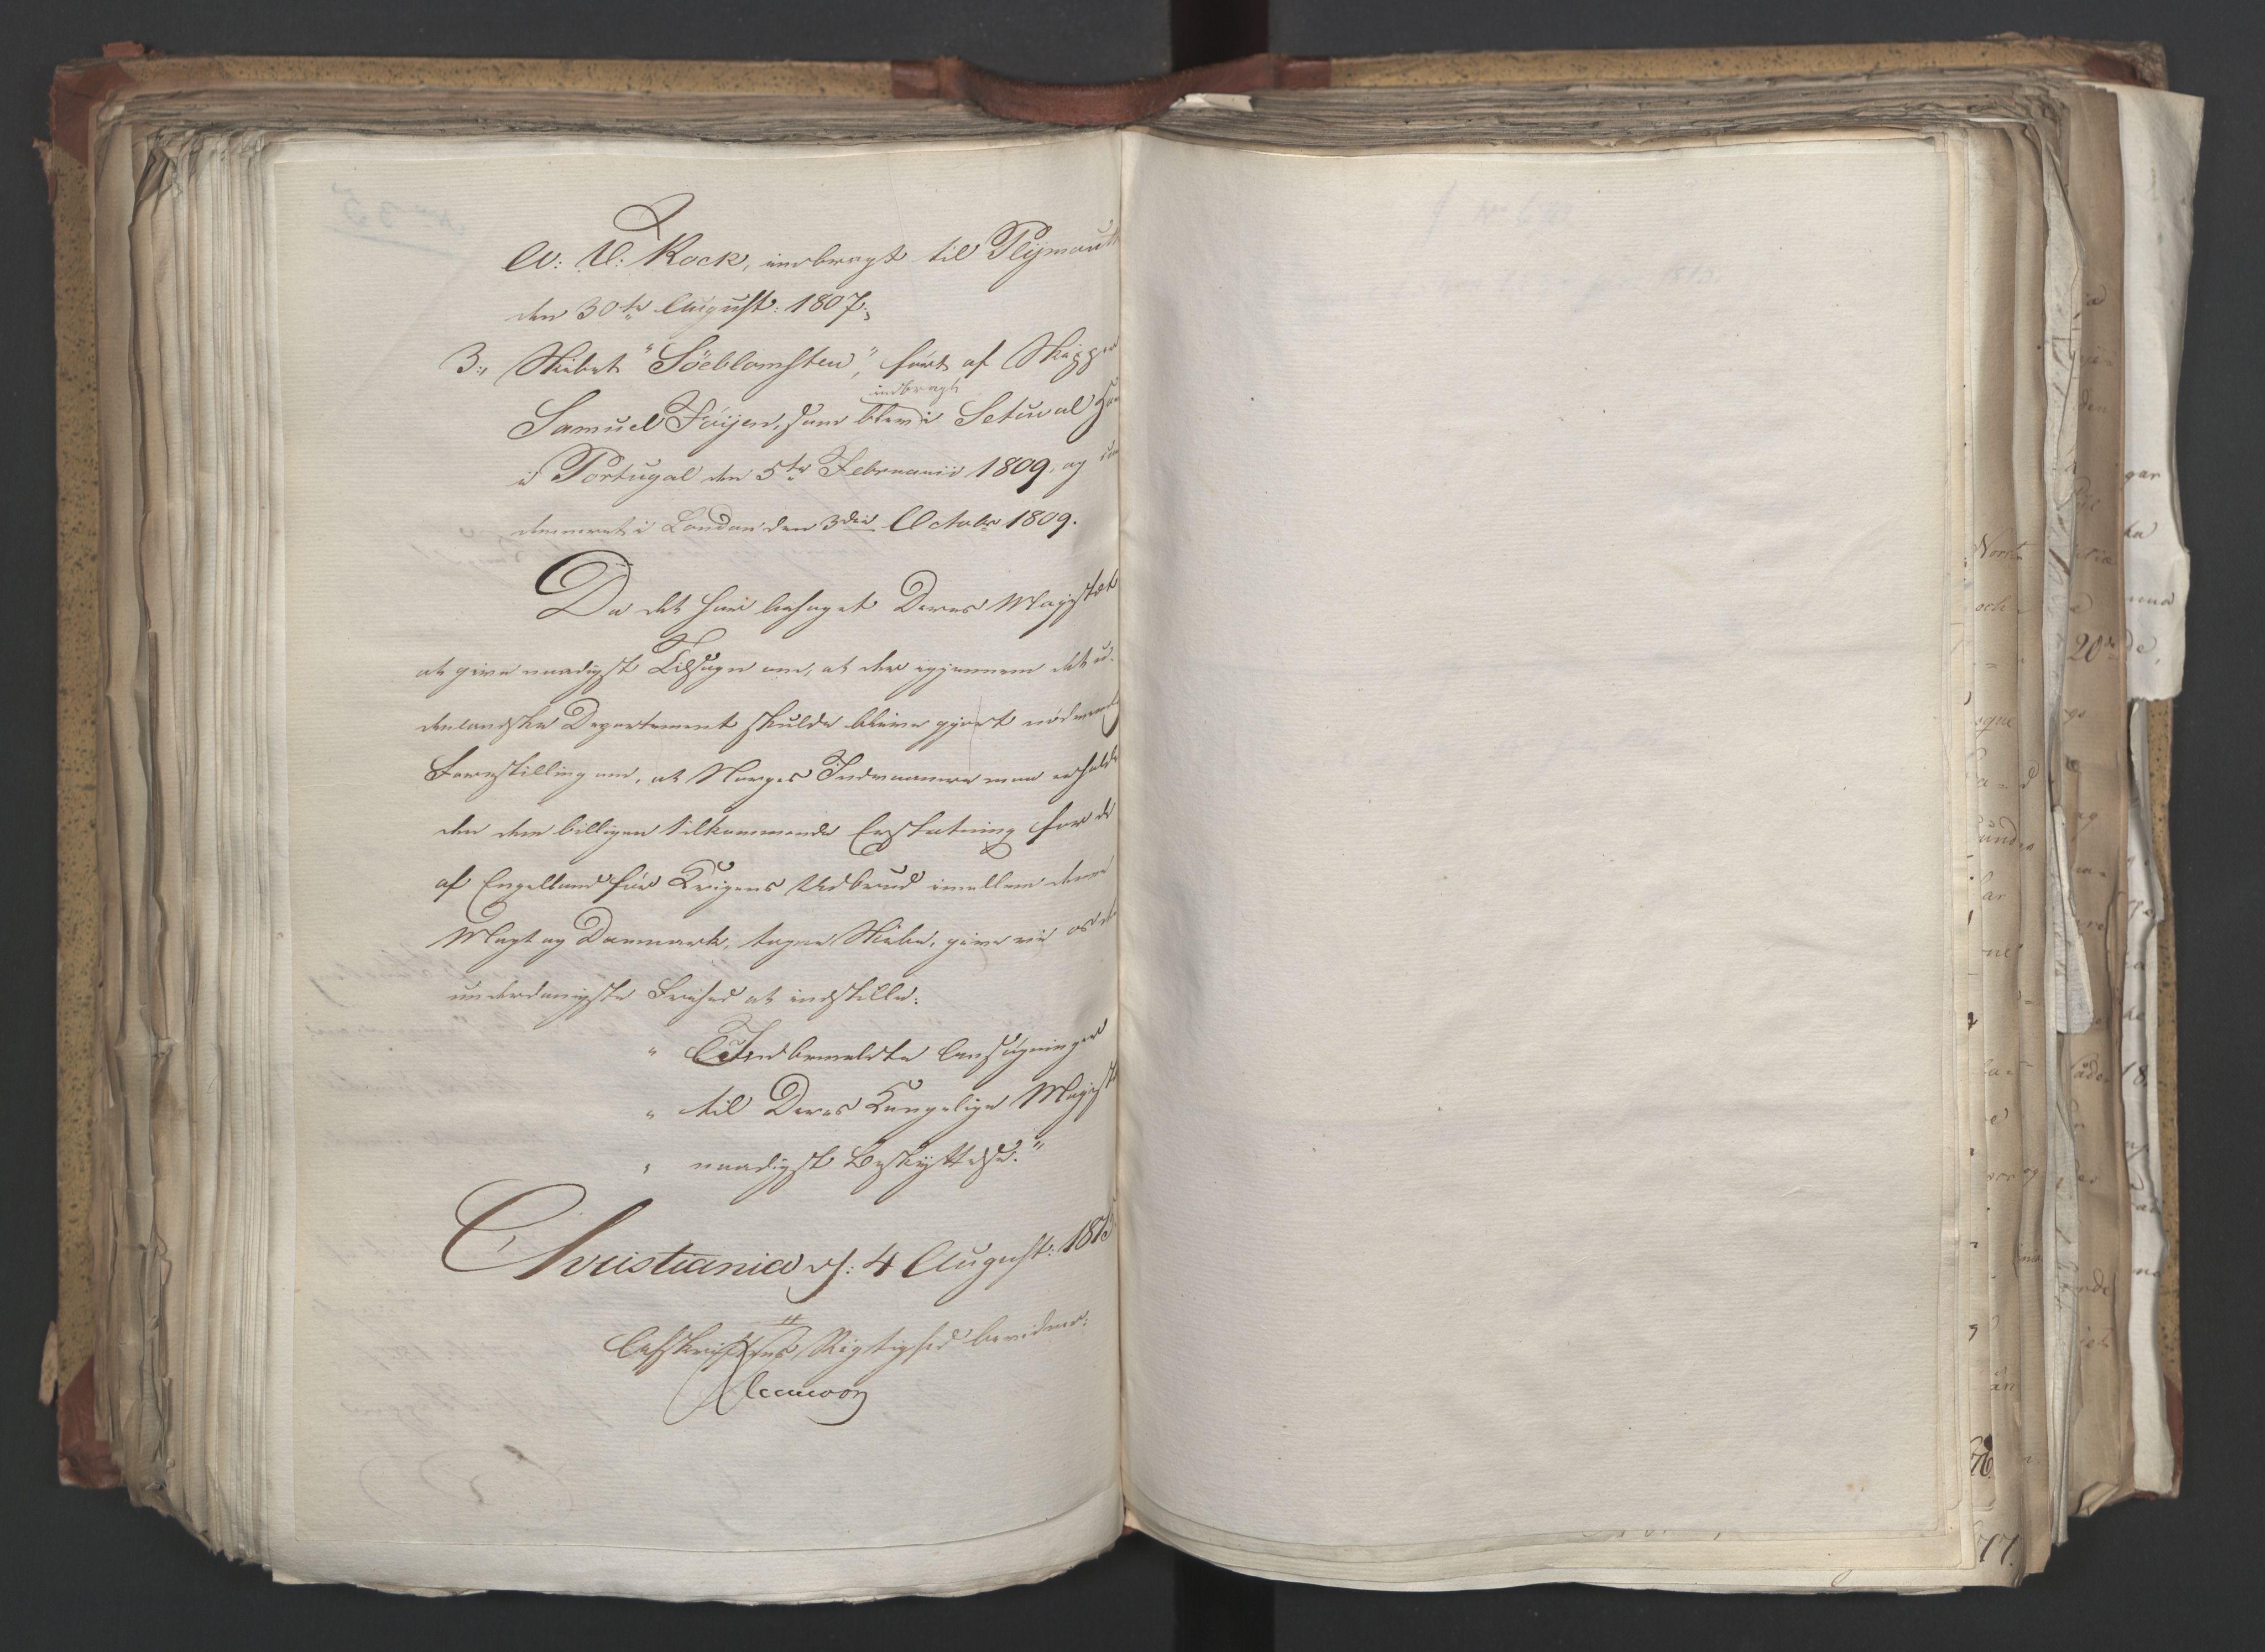 A: V: Kock, indbragt til Plÿmouth
den 30te August: 1807.,
3., Skibet "Söeblomsten", fört af Skipper
Samuel Föijen, som blev indbragt i Setuval
i Portugal den 5te Februarii 1809. og
demneret i London den 3die Octobr 1809.
Da det har behaget Deres Majestæt
at give naadigst Tilsagn om, at der igjennem det u-
denlandske Departement skulde blive gjort
Forestilling om, at Norges Indvaanere maa erholde
den dem billigen tilkommende Erstatning for de
af Engelland för Krigens Udbrud imellem denne
Magt og Danmark, tagne Skibe, give vi os
underdanigste Frihed at indstille:
" Indbemeldte Ansögninger
" til Deres Kongelige Majestæts
" naadigst Beskÿttelse."
Christiania d: 4 August: 1815
Afskriftens Rigtighed bevidner:
No 35
Norr
och
20de
77.